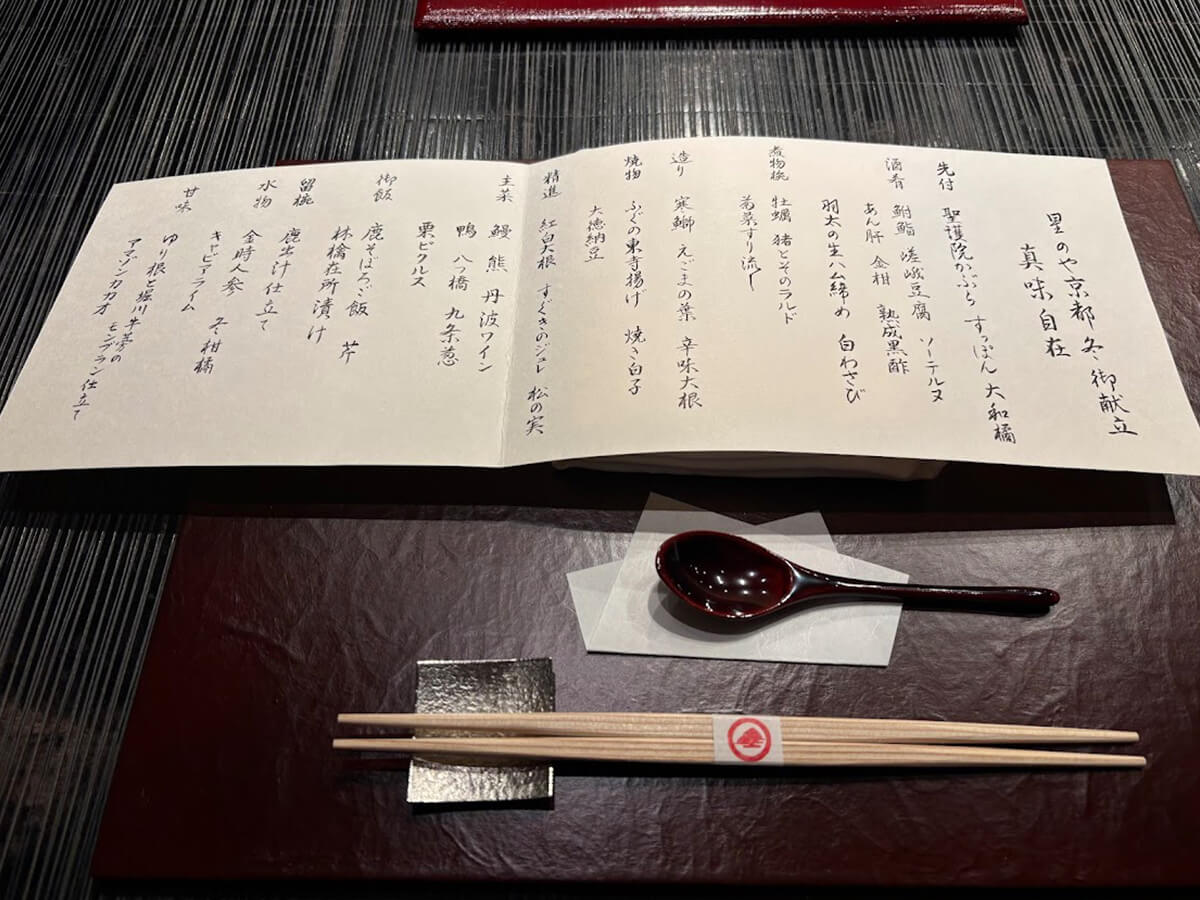 星のや京都 冬 御献立
真味自在
先付 聖護院かぶら すっぽん 大和橘
酒肴 鮒鮨 嵯峨豆腐 ソーテルヌ
あん肝 金柑 熟成黒酢
羽太の生ハム締め 白わさび
煮物椀 牡蠣 猪とそのラルド
菊菜すり流し
造り 寒鰤 えごまの葉 辛味大根
焼物 ふぐの東寺揚げ 焼き白子
大徳納豆
精進 紅白大根 すぐきのジュレ 松の実
主菜 鰻 熊 丹波ワイン
鴨 八つ橋 九条葱
栗ピクルス
御飯 鹿そぼろご飯 芹
林檎在所漬け
留椀 鹿出汁仕立て
水物 金時人参 冬柑橘
キャビアライム
甘味 ゆり根と堀川牛蒡の
モンブラン仕立て
アマゾンカカオ